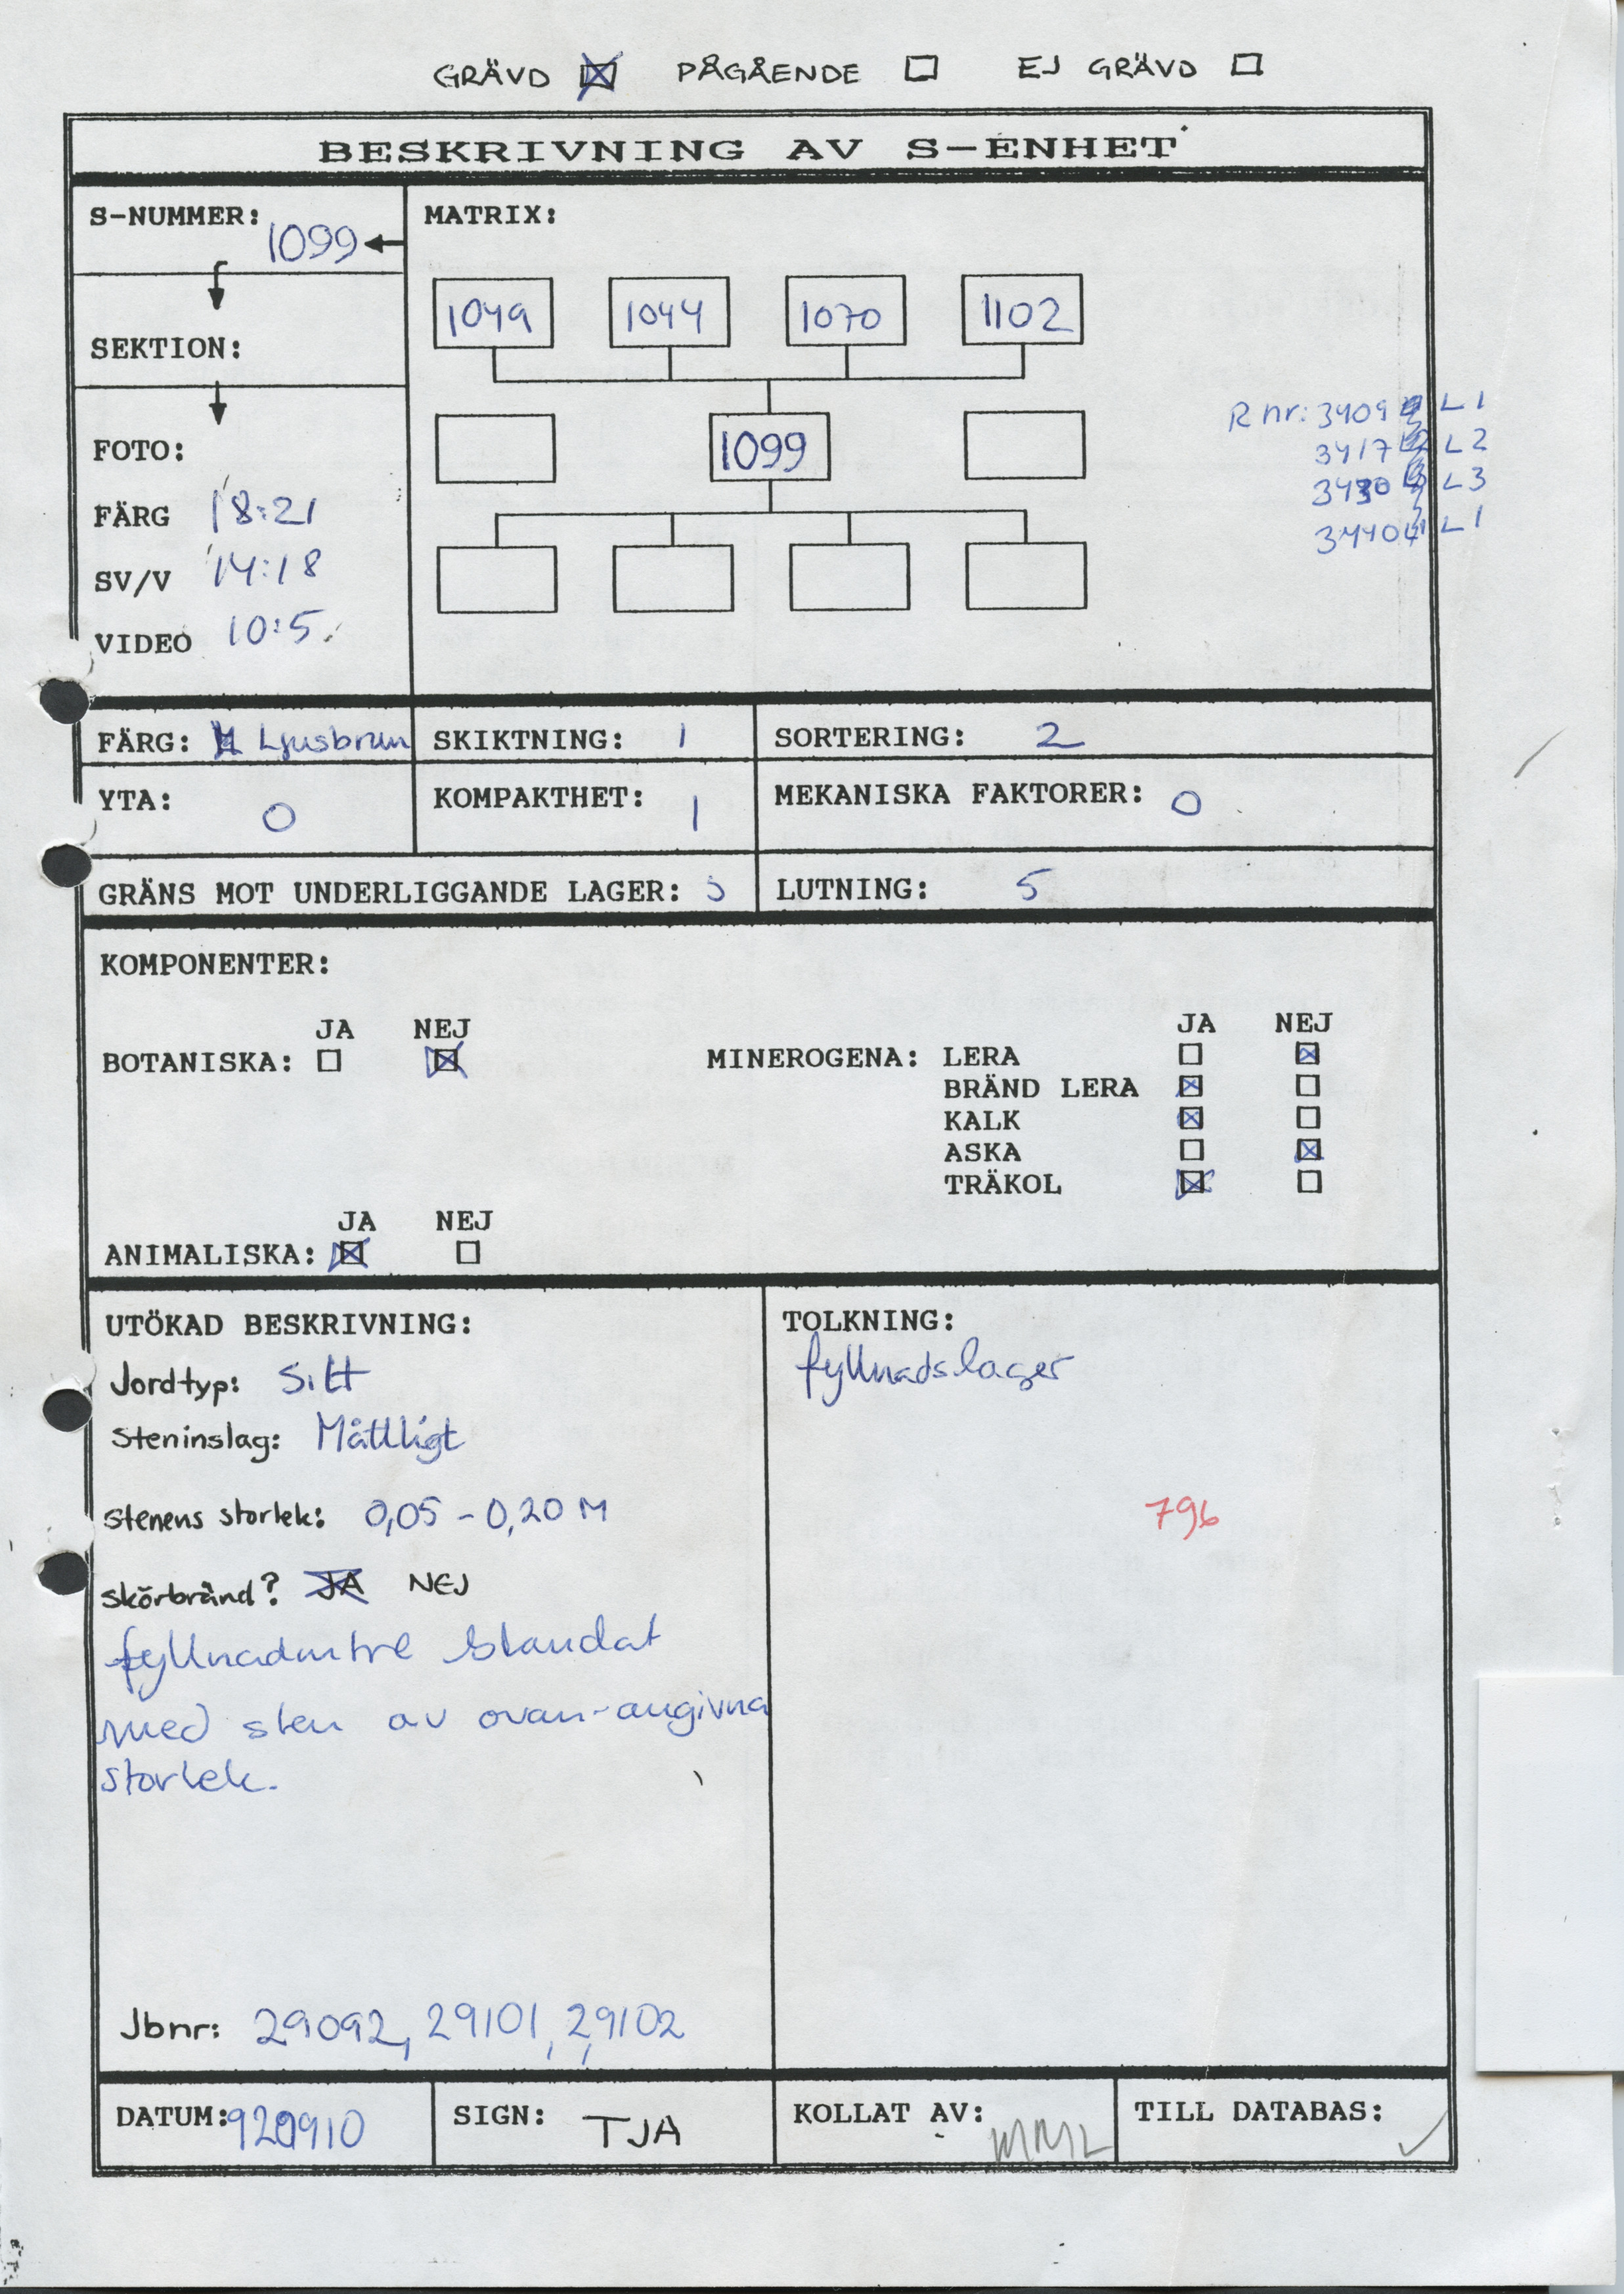 GRÄVD ☒ PÅGÅENDE ☐ EJ GRÄVD ☐
BESKRIVNING AV S-ENHET
S-NUMMER: 1099
SEKTION:
FOTO:
FÄRG 18:21
SV/V 14:18
VIDEO 10:5
MATRIX:
1049 1044 1070 1102
1099
R nr: 3409 L1
3417 L2
3430 L3
3440 L1
FÄRG: Ljusbrun SKIKTNING: 1 SORTERING: 2
YTA: 0 KOMPAKTHET: 1 MEKANISKA FAKTORER: 0
GRÄNS MOT UNDERLIGGANDE LAGER: LUTNING: 5
KOMPONENTER:
JA NEJ
BOTANISKA: ☐ ☒
JA NEJ
MINEROGENA: LERA ☐ ☒
BRÄND LERA ☒ ☐
KALK ☒ ☐
ASKA ☐ ☒
TRÄKOL ☒ ☐
JA NEJ
ANIMALISKA: ☒ ☐
UTÖKAD BESKRIVNING:
Jordtyp: Silt
Steninslag: Måttligt
Stenens storlek: 0,05 - 0,20 M
Skörbränd? JA NEJ
blandat
med sten av ovan-angivna
storlek.
Jbnr: 29092, 29101, 29102
TOLKNING:
fyllnadslager
796
DATUM: 920910 SIGN: TJA KOLLAT AV: MML TILL DATABAS: ✓